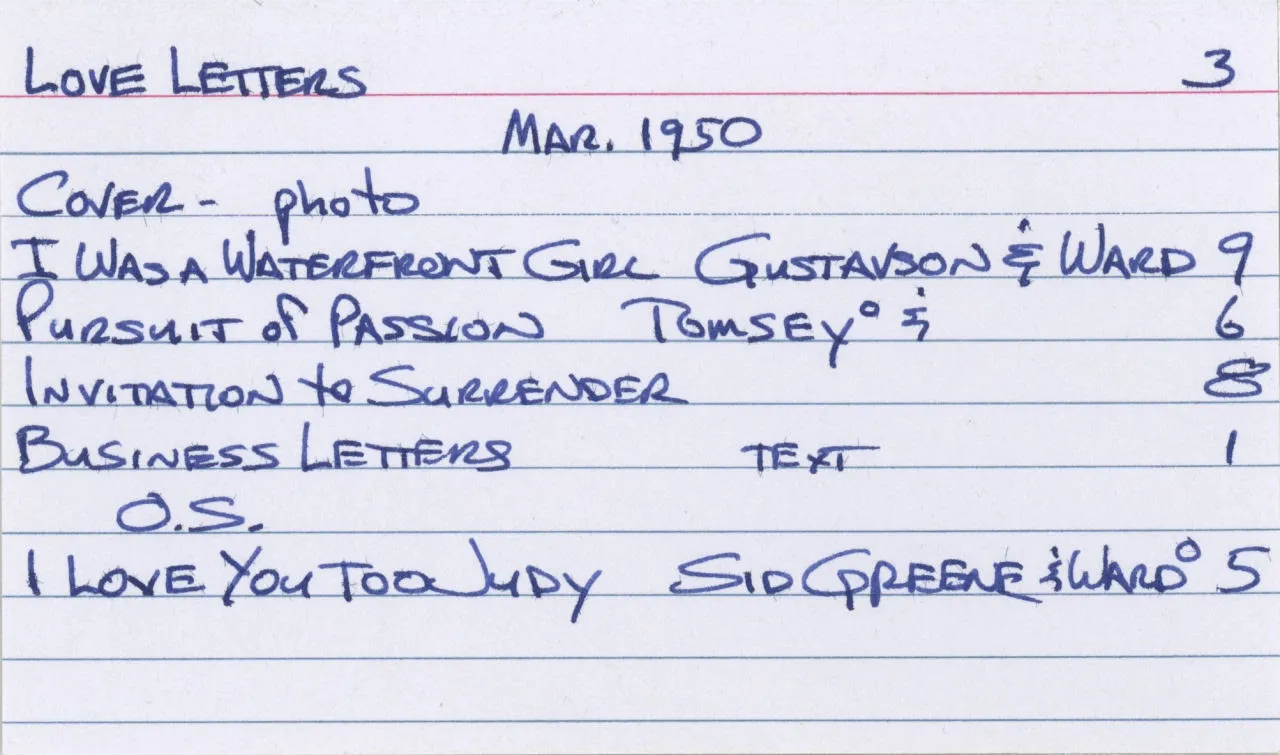 LOVE LETTERS 3
MAR. 1950
COVER - photo
I WAS A WATERFRONT GIRL GUSTAVSON & WARD 9
PURSUIT of PASSION TOMSEY° & 6
INVITATION to SURRENDER 8
BUSINESS LETTERS TEXT 1
O.S.
I LOVE YOU TOO JUDY SID GREENE & WARD° 5